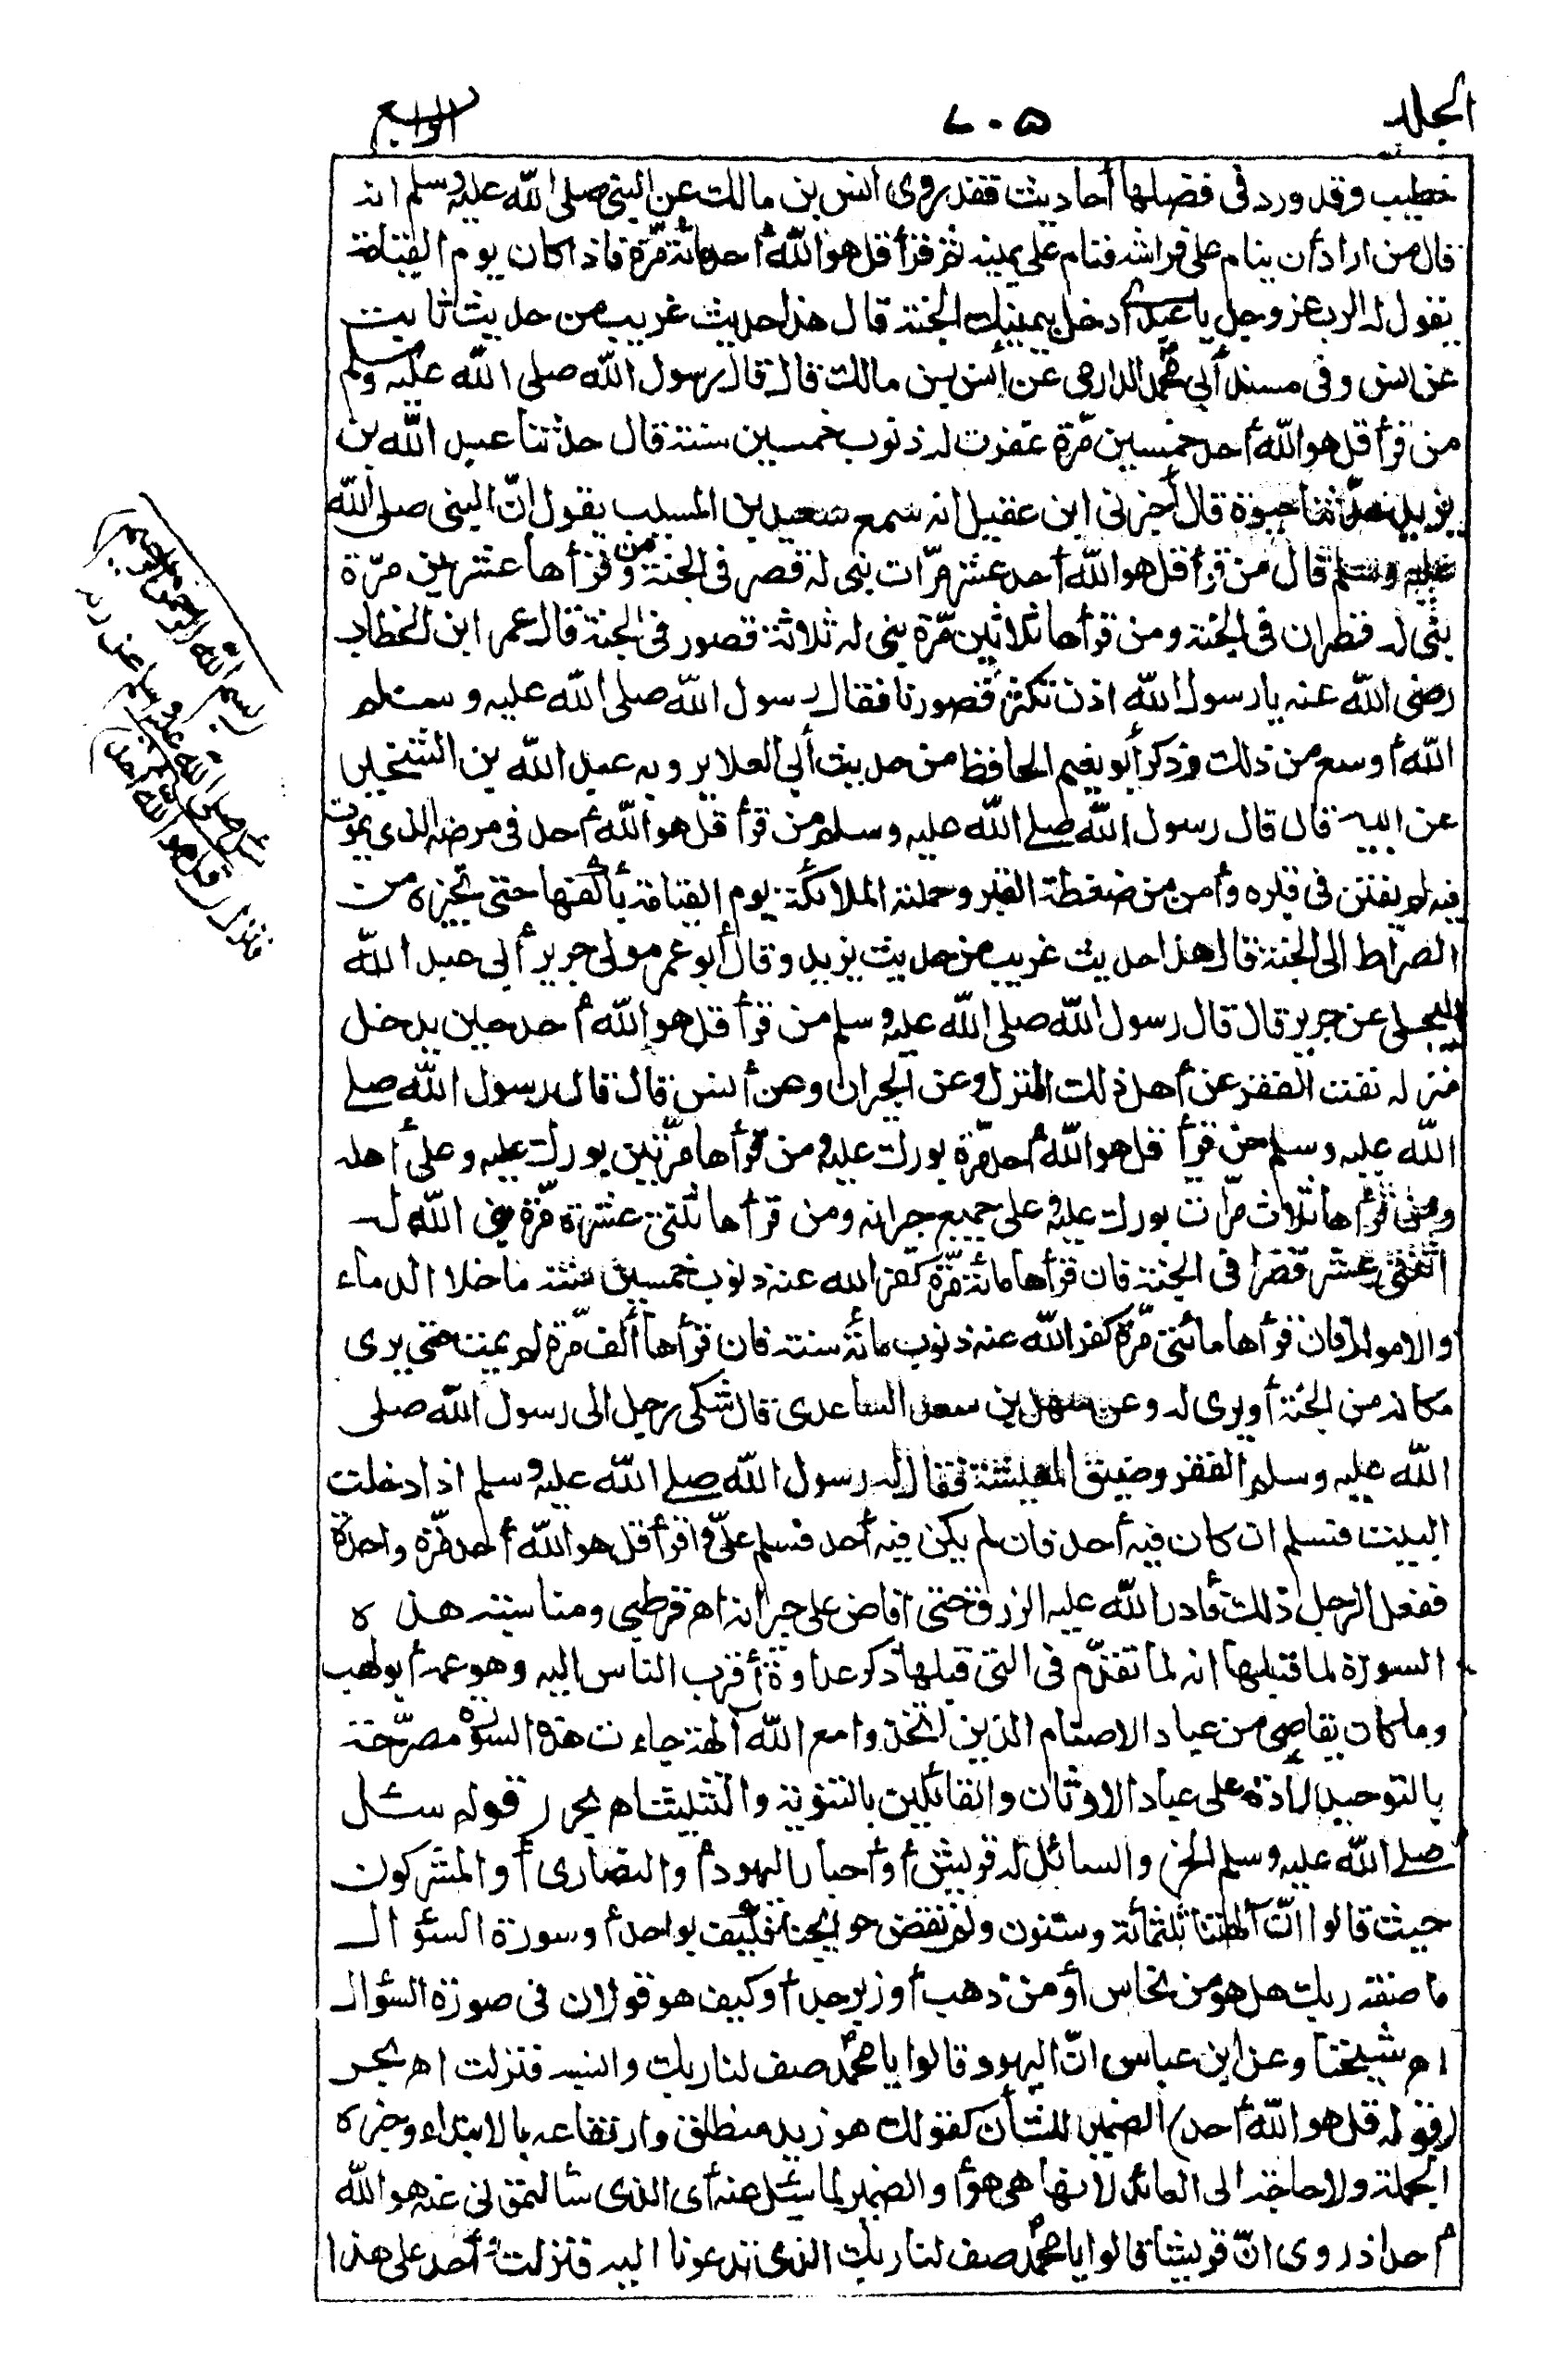 الجلد
٧٠٥
الرابع
خطيب وقد ورد فى فضلها أحاديث فقد روى انس بن مالك عن النبى صلى الله عليه وسلم انه
قال من اراد أن ينام على فراشه فنام على يمينه ثم قرأ قل هو الله أحد مائة مرّة فاذا كان يوم القيامة
يقول له الرب عز وجل يا عبدى أدخل بيمينك الجنة قال هذا حديث غريب من حديث ثابت
عن انس وفى مسند أبي محمد الدارمى عن أنس بن مالك قال قال رسول الله صلى الله عليه وسلم
من قرأ قل هو الله أحد خمسين مرّة غفرت له ذنوب خمسين سنة قال حدثنا عبد الله بن
يزيد حدّثنا حيوة قال أخبرنى ابن عقيل انه سمع سعيد بن المسيب يقول انّ النبى صلى الله
عليه وسلم قال من قرأ قل هو الله أحد عشر مرّات بنى له قصر فى الجنة ومن قرأها عشرين مرّة
بنى له قصران فى الجنة ومن قرأها ثلاثين مرّة بنى له ثلاثة قصور فى الجنة قال عمر ابن الخطاب
رضى الله عنه يا رسول الله اذن تكثر قصورنا فقال رسول الله صلى الله عليه وسلم
الله أوسع من ذلك وذكر أبو نعيم الحافظ من حديث أبي العلا يزيد بن عبد الله بن الشخير
عن ابيه قال قال رسول الله صلى الله عليه وسلم من قرأ قل هو الله أحد فى مرضه الذى يموت
فيه لم يفتن فى قبره وأمن من ضغطة القبر وحملته الملائكة يوم القيامة بأكفها حتى تجيزه من
الصراط الى الجنة قال هذا حديث غريب من حديث يزيد وقال أبو عمر مولى جرير أبي عبد الله
البجلى عن جرير قال قال رسول الله صلى الله عليه وسلم من قرأ قل هو الله أحد حين يدخل
منزله نفت الفقر عن أهل ذلك المنزل وعن الجيران وعن أنس قال قال رسول الله صلى
الله عليه وسلم من قرأ قل هو الله أحد مرّة بورك عليه ومن قرأها مرّتين بورك عليه وعلى أهله
ومن قرأها ثلاث مرّات بورك عليه وعلى جميع جيرانه ومن قرأها ثلتى عشرة مرّة بنى الله له
اثنى عشر قصرا فى الجنة فان قرأها مائة مرّة كفر الله عنه ذنوب خمسين سنة ما خلا الدماء
والاموال فان قرأها مائتى مرّة كفر الله عنه ذنوب مائة سنة فان قرأها ألف مرّة لم يمت حتى يرى
مكانه من الجنة أو يرى له وعن سهل بن سعد الساعدى قال شكى رجل الى رسول الله صلى
الله عليه وسلم الفقر وضيق المعيشة فقال له رسول الله صلى الله عليه وسلم اذا دخلت
البيت فسلم ان كان فيه أحد فان لم يكن فيه أحد فسلم علىّ واقرأ قل هو الله أحد مرّة واحدة
ففعل الرجل ذلك فأدر الله عليه الرزق حتى افاض على جيرانه اهـ قرطبى ومناسبته هذه
السورة لما قبلها انه لما تقدّم فى التى قبلها ذكر عداوة أقرب الناس اليه وهو عمه أبو لهب
وما كان يقاصى من عباد الاصنام الذين اتخذوا مع الله آلهة جاءت هذه السورة مصرّحة
بالتوحيد رادّة على عباد الاوثان والقائلين بالثنوية والتثليث اهـ بحر قوله سئل
صلى الله عليه وسلم الخ والسائل له قريش أو أحبار اليهود أو النصارى أو المشركون
حيث قالوا انّ آلهتنا ثلثمائة وستون ولم تقض حوائجنا فكيف بواحد أو سورة السؤال
ما صفة ربك هل هو من نحاس أو من ذهب أو زبرجد أو كيف هو قولان فى صورة السؤال
اهـ شيخنا وعن ابن عباس انّ اليهود قالوا يا محمد صف لنا ربك وانسبه فنزلت اهـ بحر
(قوله قل هو الله أحد) الضمير للشأن كقولك هو زيد منطلق وارتفاعه بالابتداء وخبره
الجملة ولا حاجة الى العائد لانها هى هو أو الضمير لما سئل عنه أى الذى سألتمونى عنه هو الله
أحد اذ روى انّ قريشا قالوا يا محمد صف لنا ربك الذى تدعونا اليه فنزلت أحد على هذا
بسم الله الرحمن الرحيم
صلى الله عليه وسلم عن ربه
فنزل قل هو الله احد